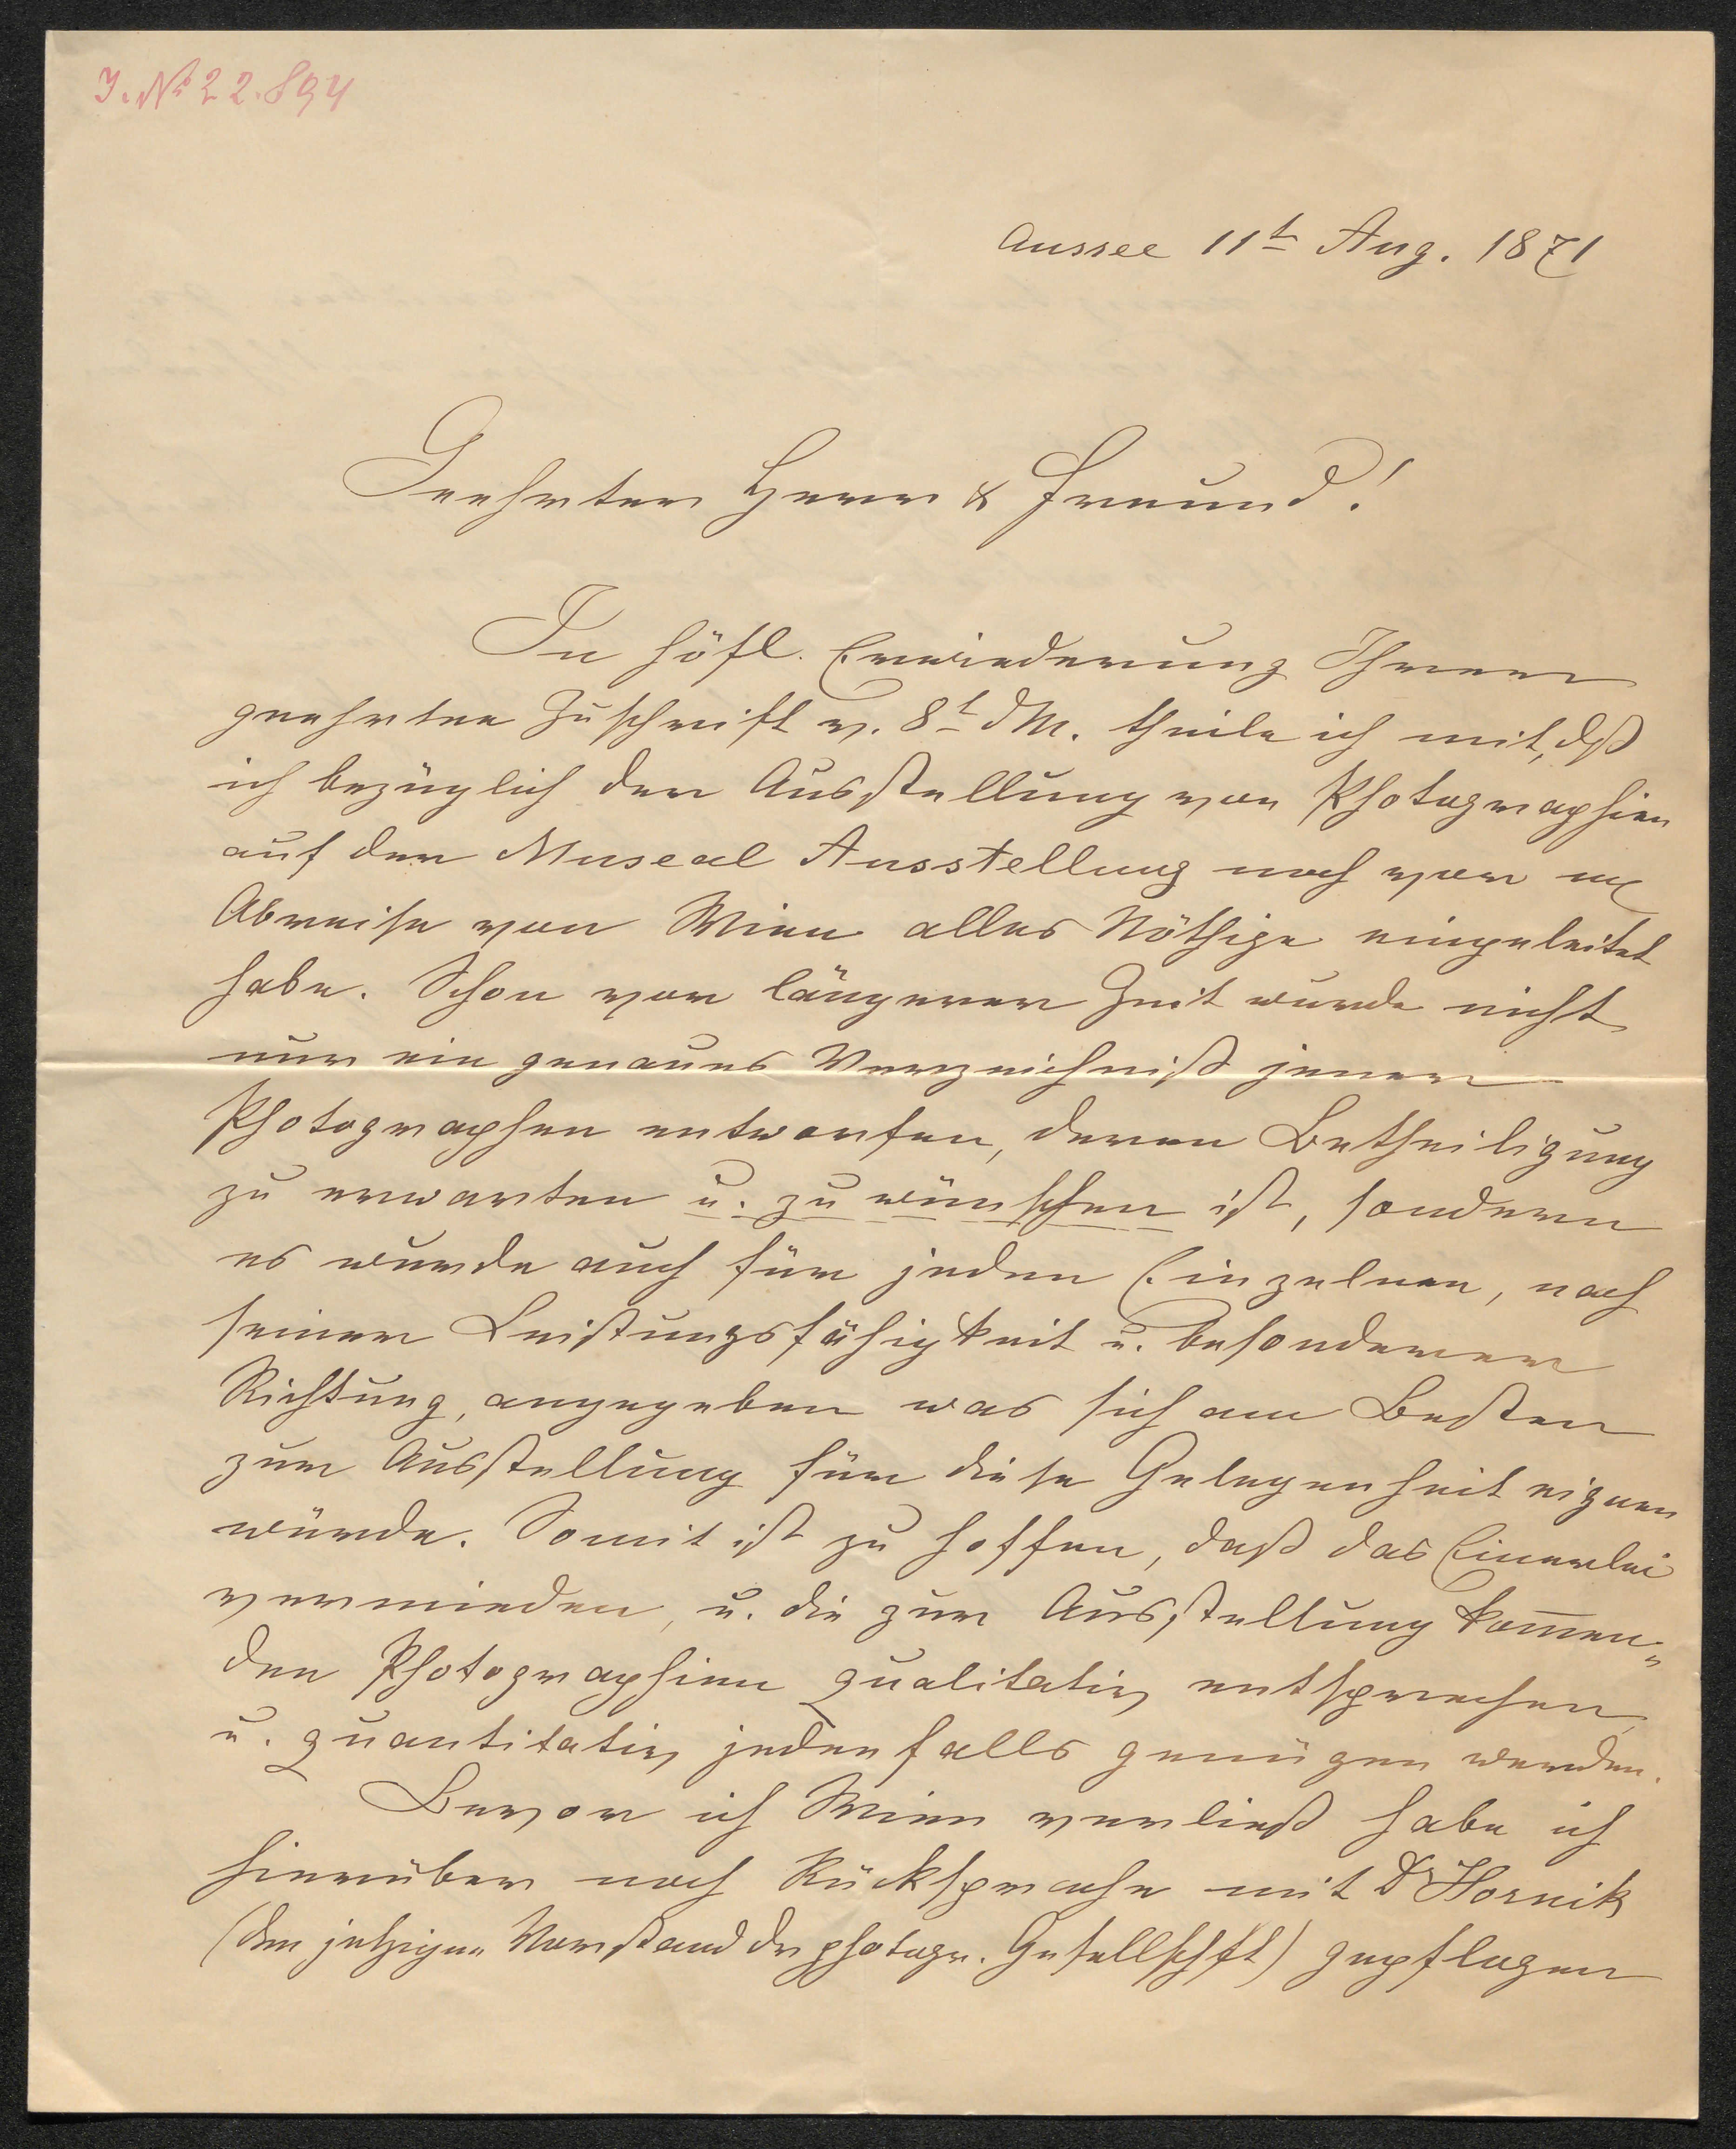 J. No 22.894
Aussee 11t Aug. 1871
Geehrter Herr & Freund!
In höfl. Erwiederung Ihrer
geehrten Zuschrift v. 8t dM. theile ich mit, dß
ich bezüglich der Ausstellung von Photographien
auf der Museal Ausstellung noch vor m
Abreise von Wien alles Nöthige eingeleitet
habe. Schon vor längerer Zeit wurde nicht
nur ein genaues Verzeichniß jener
Photographen entworfen, deren Betheiligung
zu erwarten u. zu wünschen ist, sondern
es wurde auch für jeden Einzelnen, nach
seiner Leistungsfähigkeit u. besonderer
Richtung, angegeben was sich am Besten
zur Ausstellung für diese Gelegenheit eignen
würde. Somit ist zu hoffen, daß das Einerlei
vermieden, u. die zur Ausstellung kom̅en„
den Photographien qualitativ entsprechen,
u. quantitativ jedenfalls genügen werden.
Bevor ich Wien verließ habe ich
hierüber noch Rücksprache mit Dr Hornik
(dem jetzigen Vorstand der photogr. Gesellschft) gepflogen